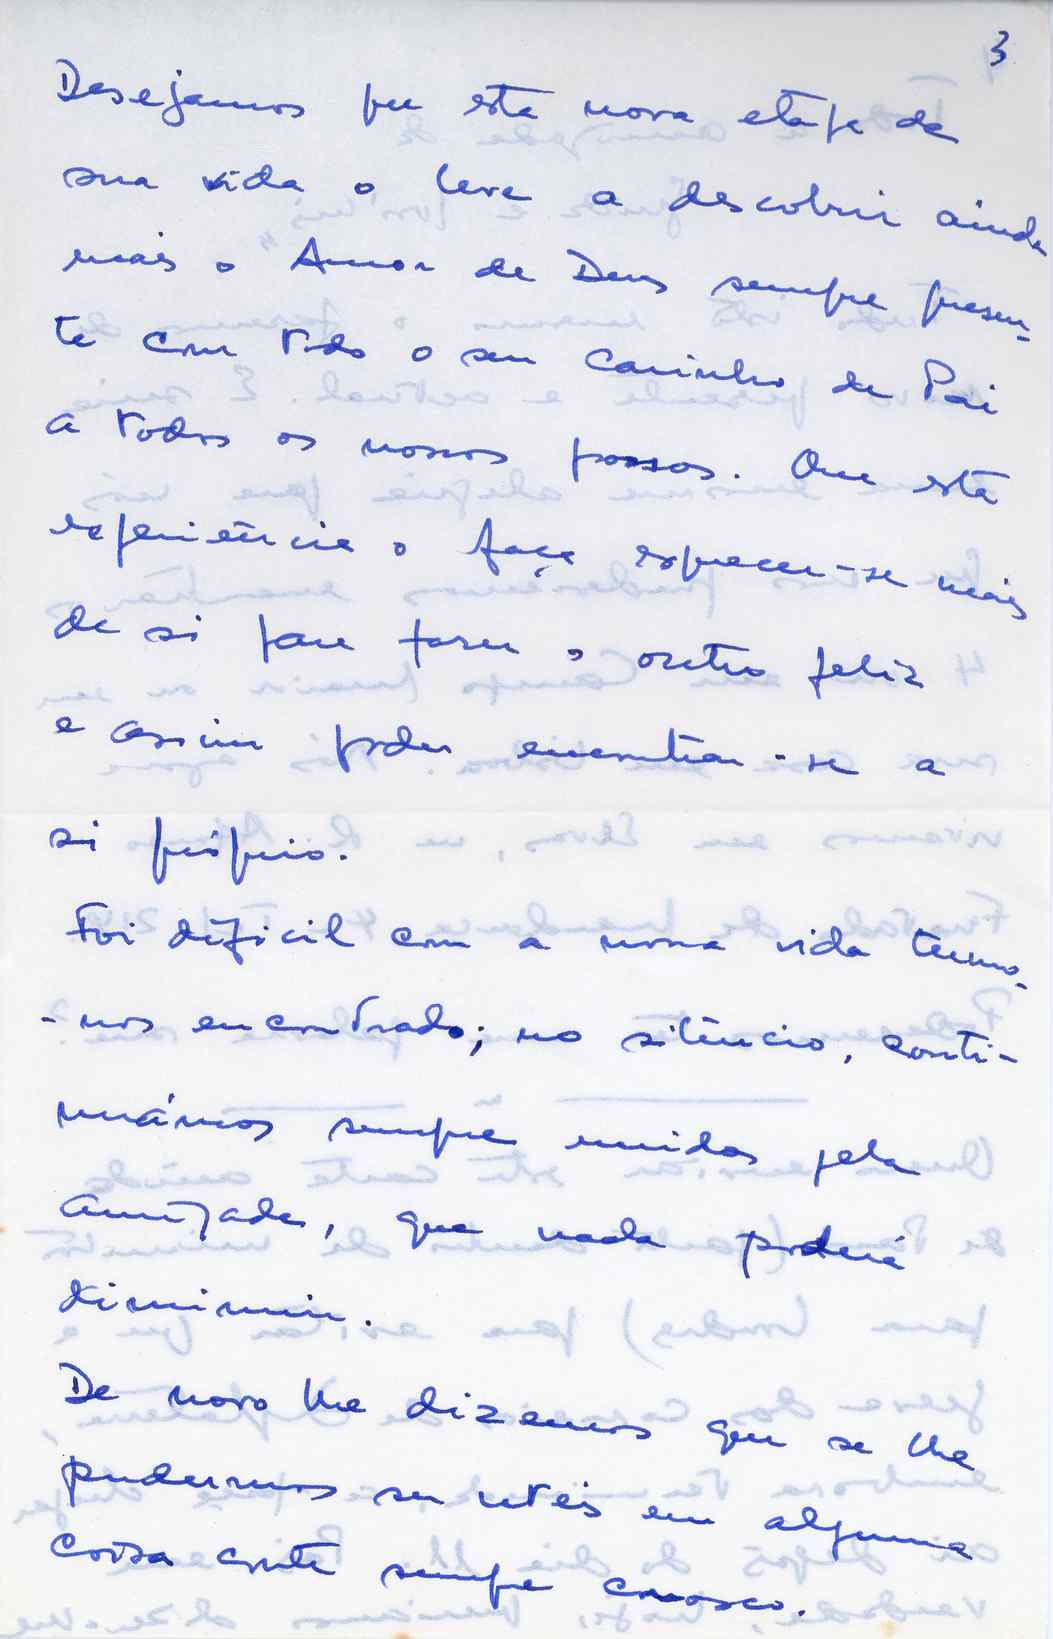 3
Desejamos que esta nova etapa da
sua vida o leve a descobrir ainda
mais o Amor de Deus sempre presen-
te com todo o seu carinho de Pai
a todos os nossos passos. Que esta
experiência o faça esquecer-se mais
de si para fazer o outro feliz
e assim poder encontrar-se a
si próprio.
Foi difícil com a nossa vida termo-
-nos encontrado; no silêncio, conti-
nuámos sempre unidos pela
amizade, que nada poderá
diminuir.
De novo lhe dizemos que se lhe
pudermos ser utéis em alguma
coisa conte sempre conosco.